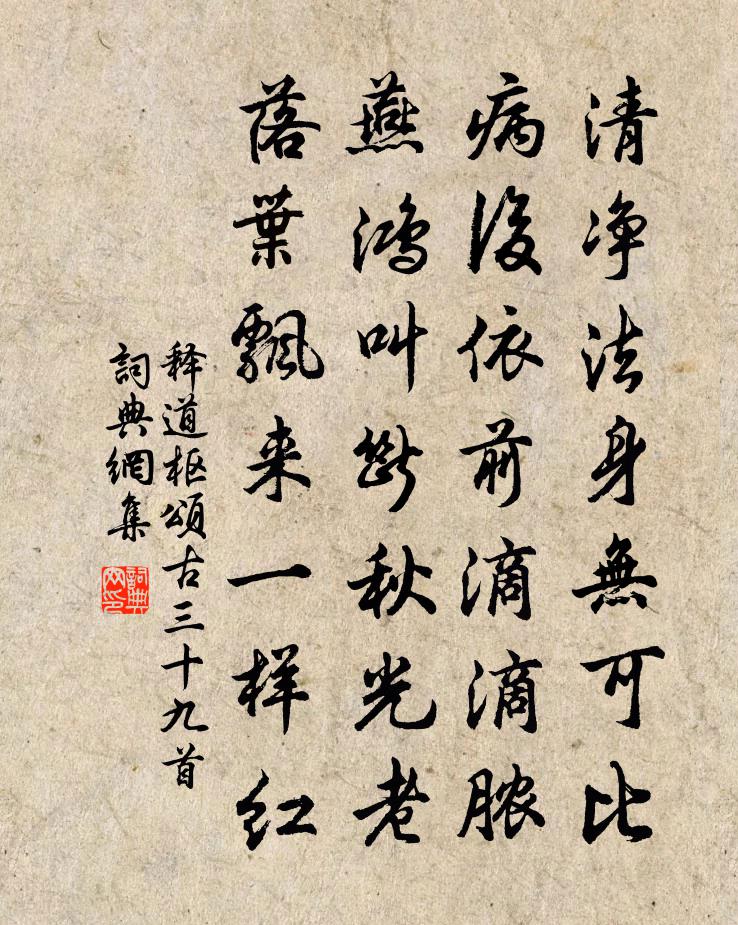 清净法身無可比
病後依前滴滴脓
燕鴻叫斷秋光老
落葉飄来一样红
释道枢頌古三十九首
詞典網集
詞典
网印